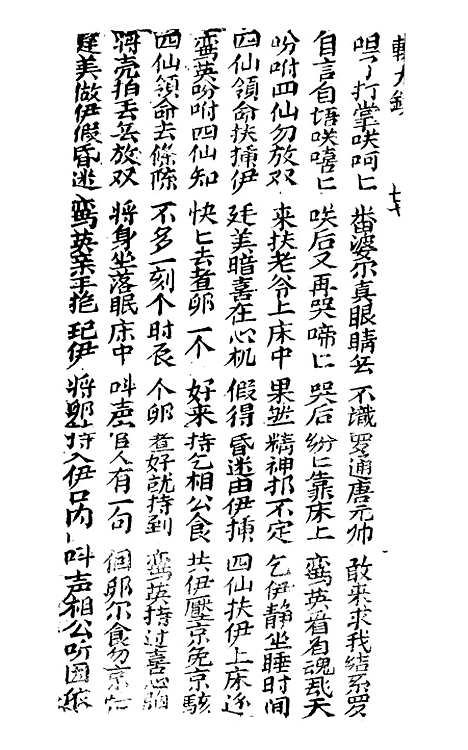 咀了打掌咲呵匕 畨婆尔真眼睛合 不識罗通唐元帅 敢来求我結系罗
自言自语咲嘻匕 咲后又再哭啼匕 哭后纷匕靠床上 鸾英看着魂乱天
吩咐四仙勿放双 来扶老爷上床中 果然精神打不定 乞伊静坐睡时间
四仙領命扶插伊 廷美暗喜在心机 假得昏迷由伊插 四仙扶伊上床
鸾英吩咐四仙知 快匕去煮卵一个 好来持乞相公食 共伊壓京免京駭
四仙領命去條陈 不多一刻个时辰 个卵煮好就持到 鸾英持过喜心
将壳拍丢去放双 将身坐落眠床中 叫声官人有一句 個卵尔食勿京
廷美做伊假昏迷 鸾英亲手抱 伊 将卵持入伊口内 叫声相公听因